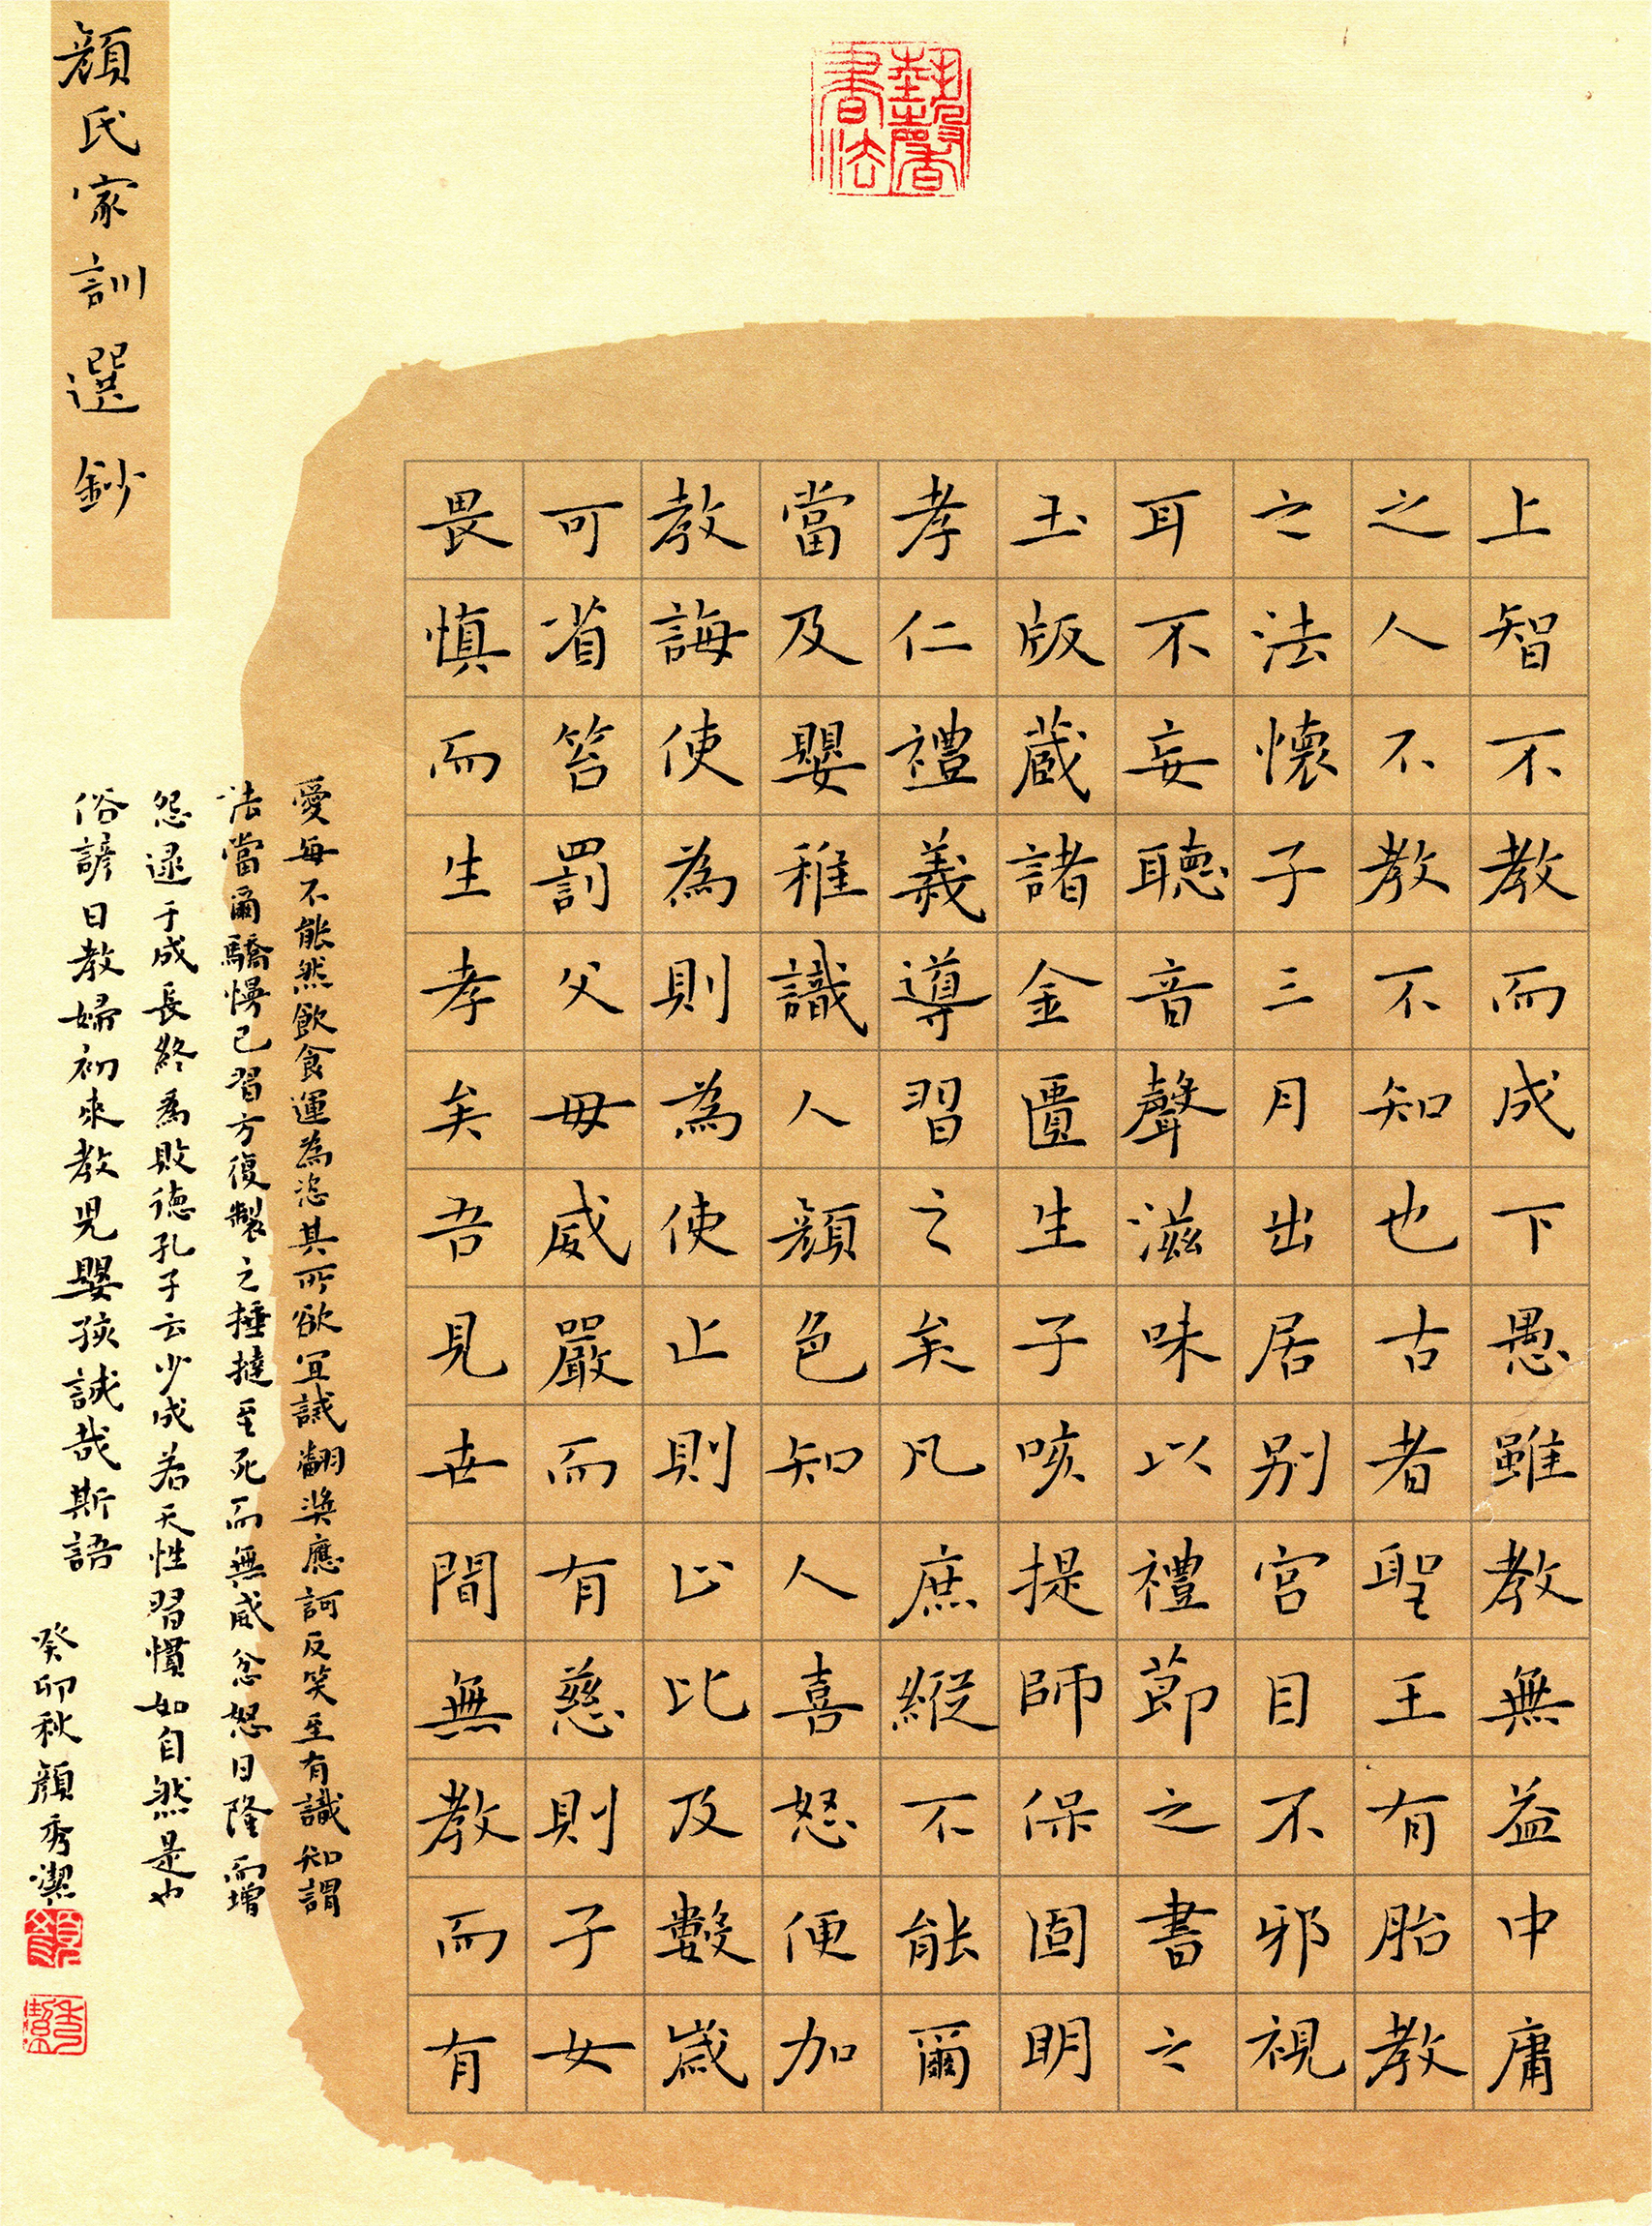 顏氏家訓選鈔
上智不教而成下愚雖教無益中庸
之人不教不知也古者聖王有胎教
之法懷子三月出居别宮目不邪視
耳不妄聽音聲滋味以禮節之書之
玉版蔵諸金匱生子咳提師保固明
孝仁禮義導習之矣凡庶縱不能爾
當及嬰稚識人顏色知人喜怒便加
教誨使為則為使止則止比及數歲
可省笞罰父毋威嚴而有慈則子女
畏慎而生孝矣吾見世間無教而有
愛每不能然飲食運為恣其所欲宜誡翻奬應訶反笑至有識知謂
法當爾驕慢已習方復製之捶撻至死而無威忿怒日隆而增
怨逮于成長終為敗德孔子云少成若天性習慣如自然是也
俗諺曰教婦初來教兒嬰孩誠哉斯語
癸卯秋顏秀潔